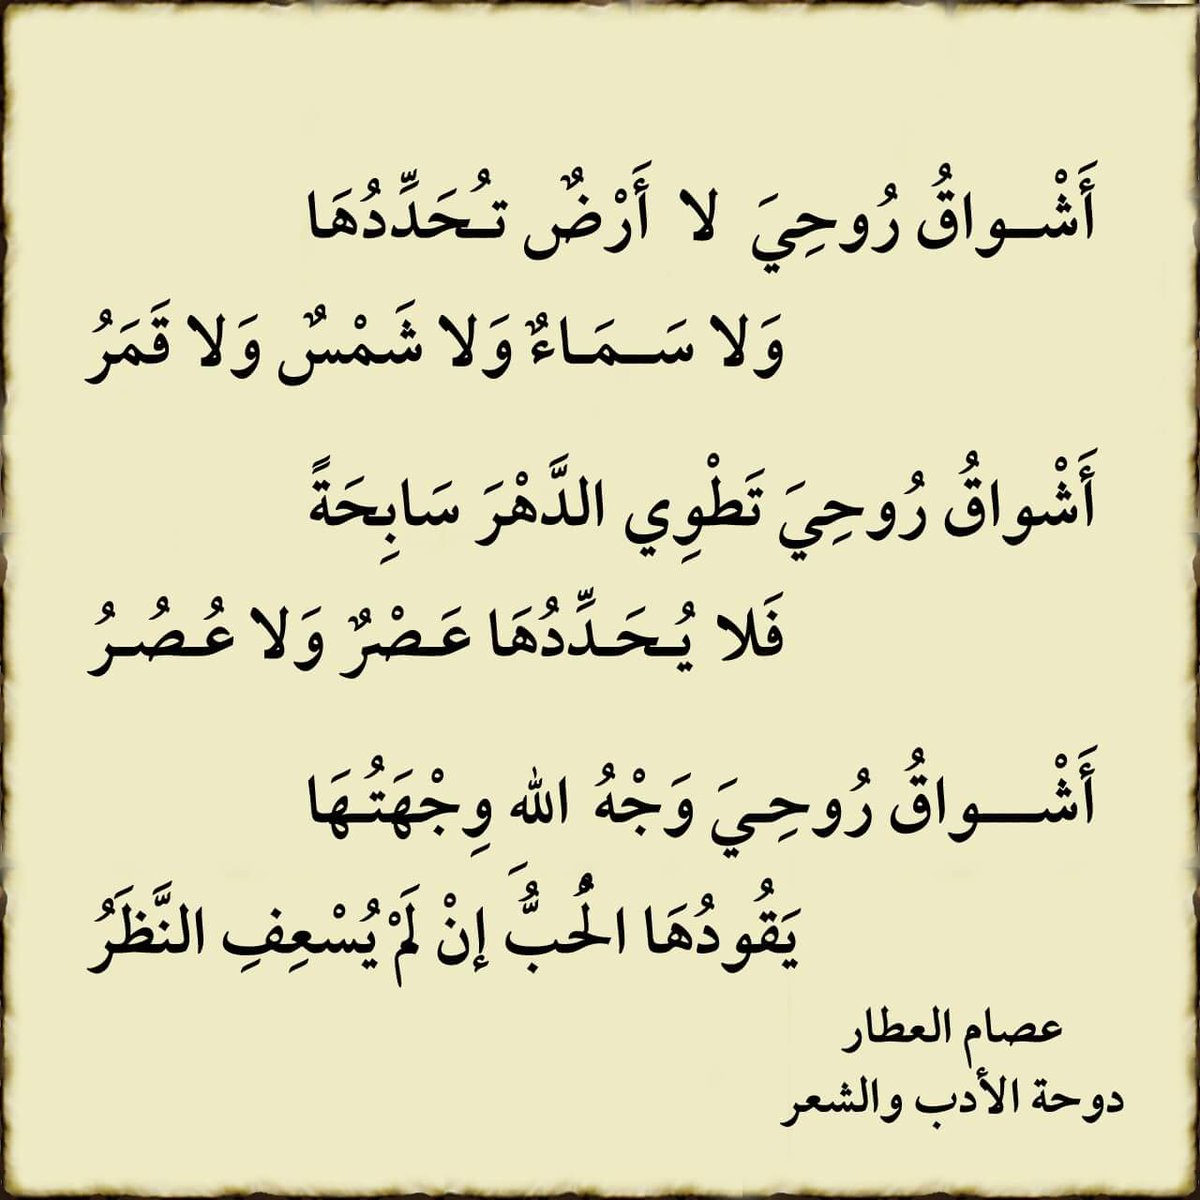 أَشْـواقُ رُوحِيَ لا أَرْضٌ تُـحَدِّدُهَا
وَلا سَـمَـاءٌ وَلا شَمْسٌ وَلا قَمَرُ
أَشْواقُ رُوحِيَ تَطْوِي الدَّهْرَ سَابِحَةً
فَلا يُـحَـدِّدُهَا عَـصْرٌ وَلا عُـصُـرُ
أَشْـــواقُ رُوحِـيَ وَجْهُ الله وِجْهَتُـهَا
يَقُودُهَا الحُبُّ إنْ لَمْ يُسْعِفِ النَّظَرُ
عصام العطار
دوحة الأدب والشعر